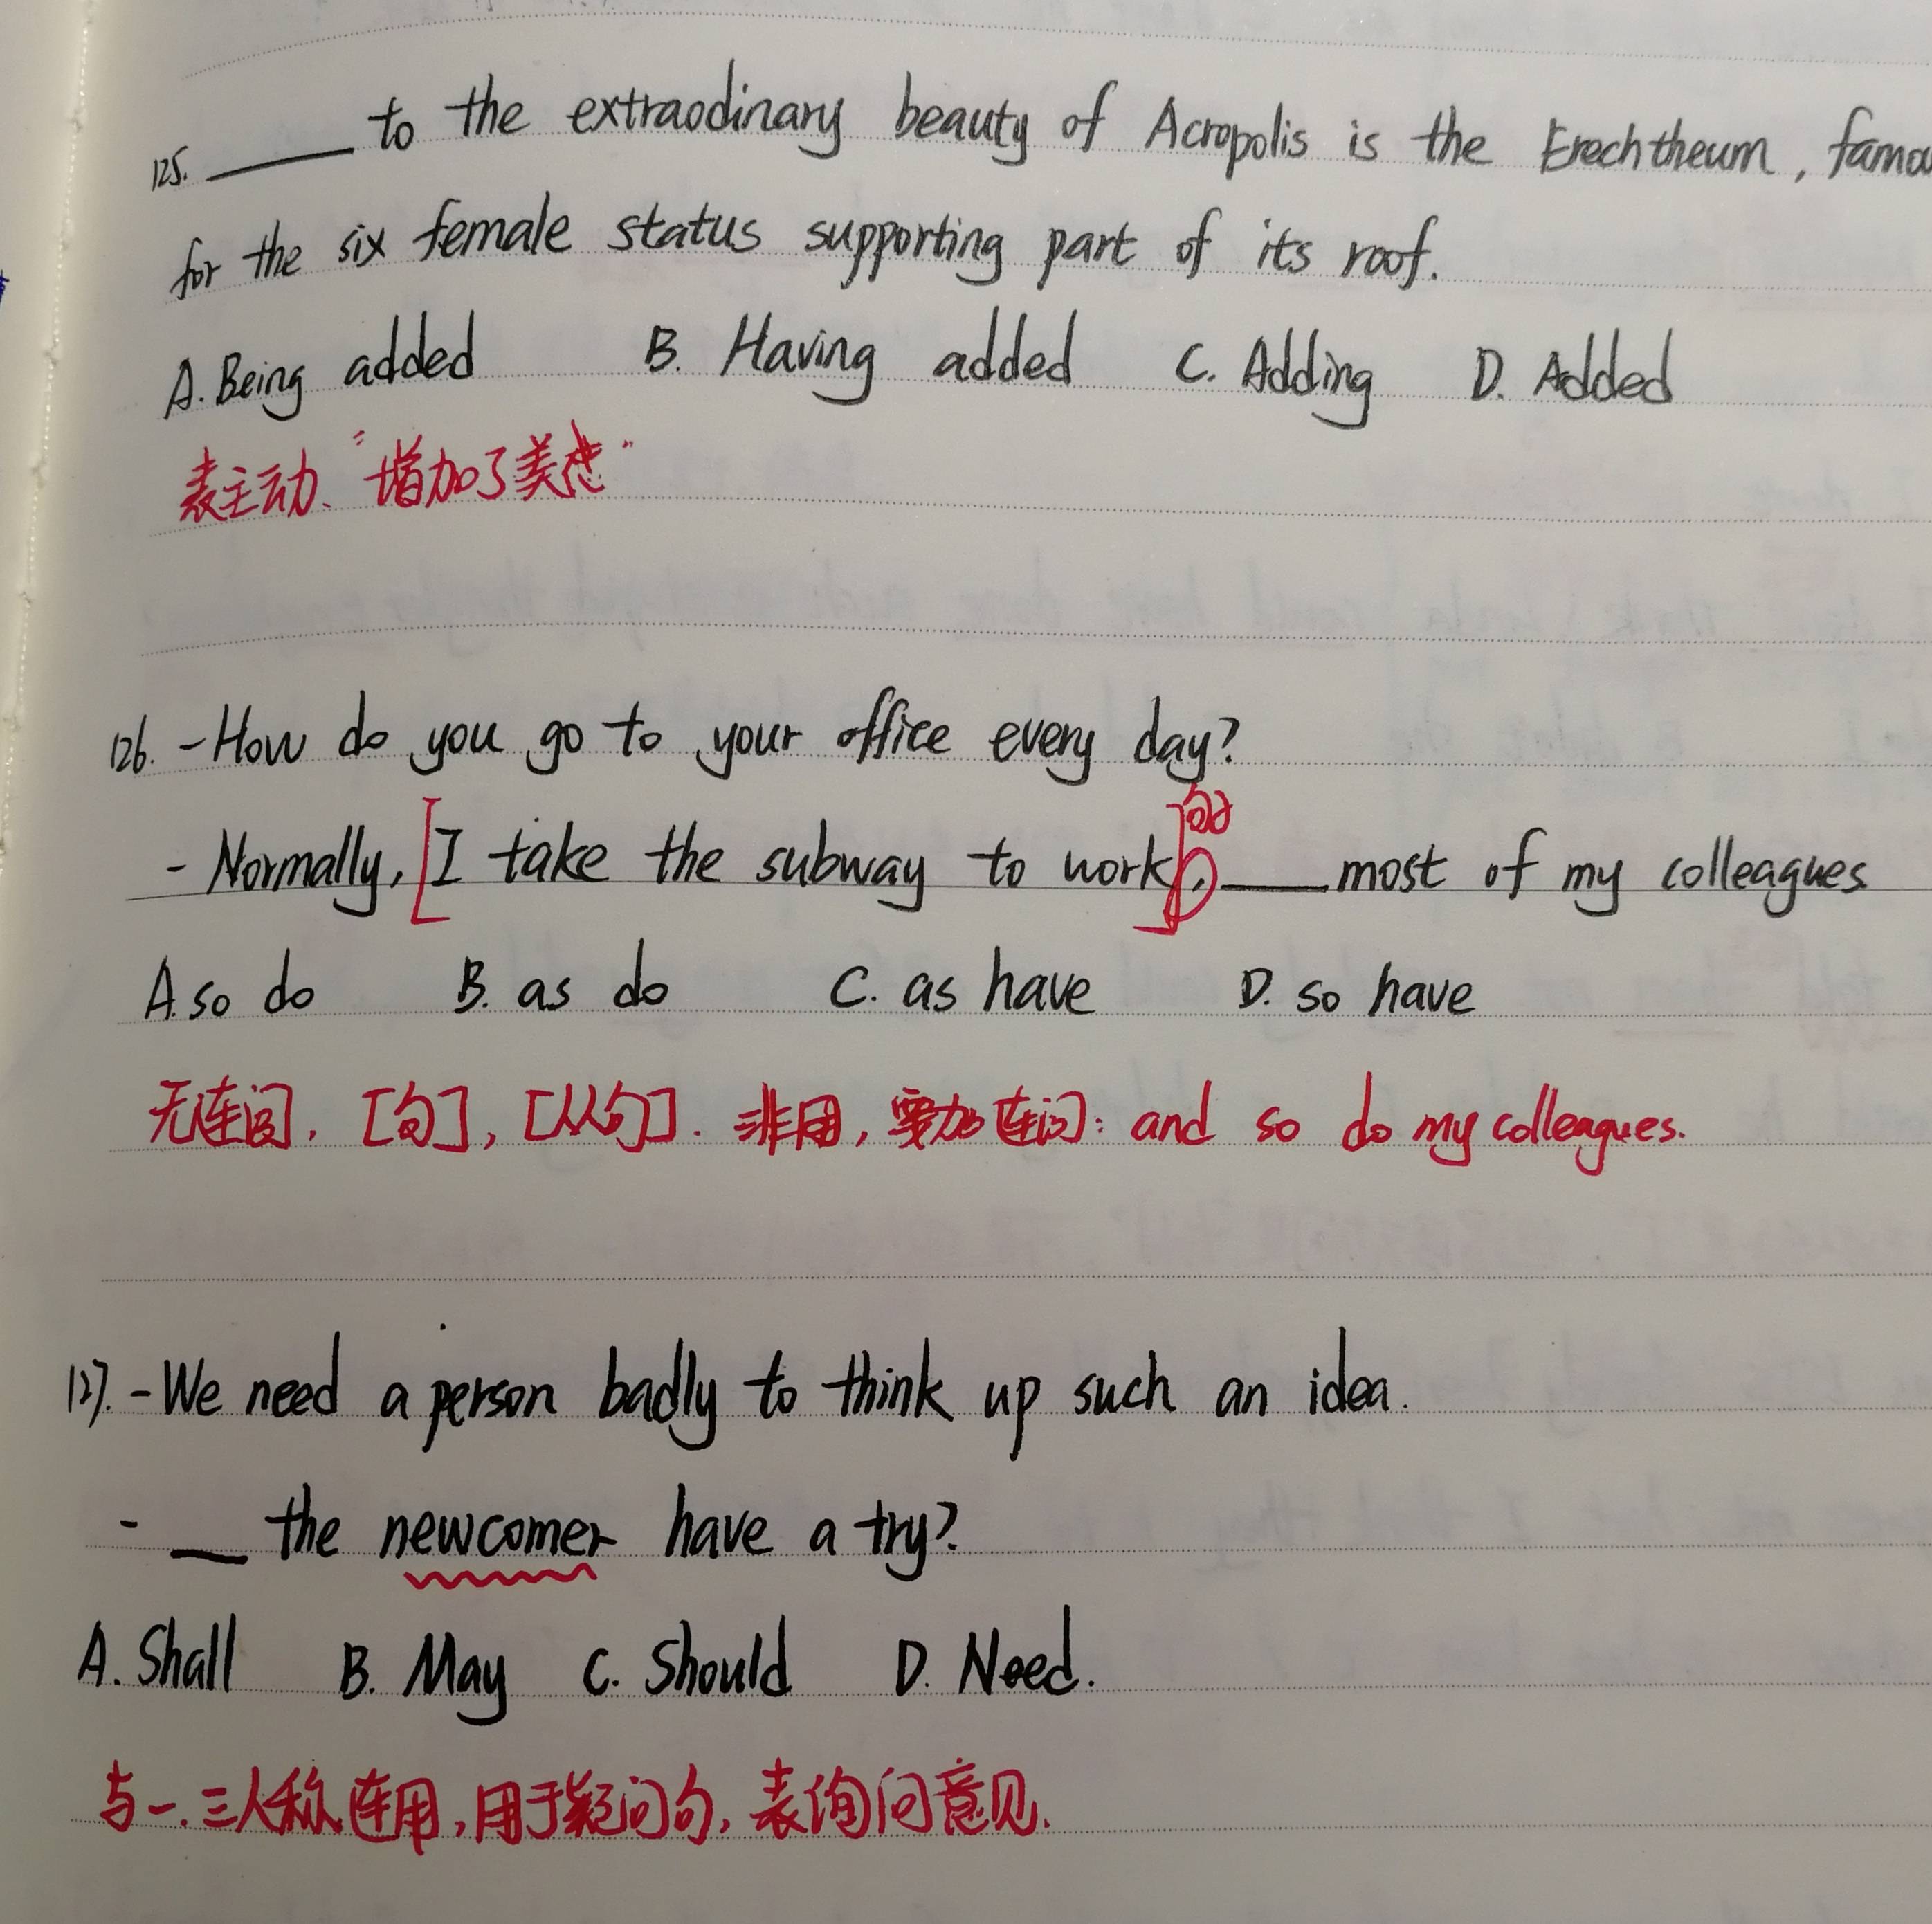 125. ____ to the extraodinary beauty of Acropolis is the Erechtheum, famou
for the six female status supporting part of its roof.
A. Being added B. Having added C. Adding D. Added
表主动、"增加了美感"
126. -How do you go to your office every day?
句
- Normally, [I take the subway to work], ____ most of my colleagues
A. so do B. as do C. as have D. so have
无连词, [句], [从句]. 非用, 要加连词: and so do my colleagues.
127. -We need a person badly to think up such an idea.
- __ the newcomer have a try?
A. Shall B. May C. Should D. Need.
与一.三人称连用,用于疑问句,表询问意见.